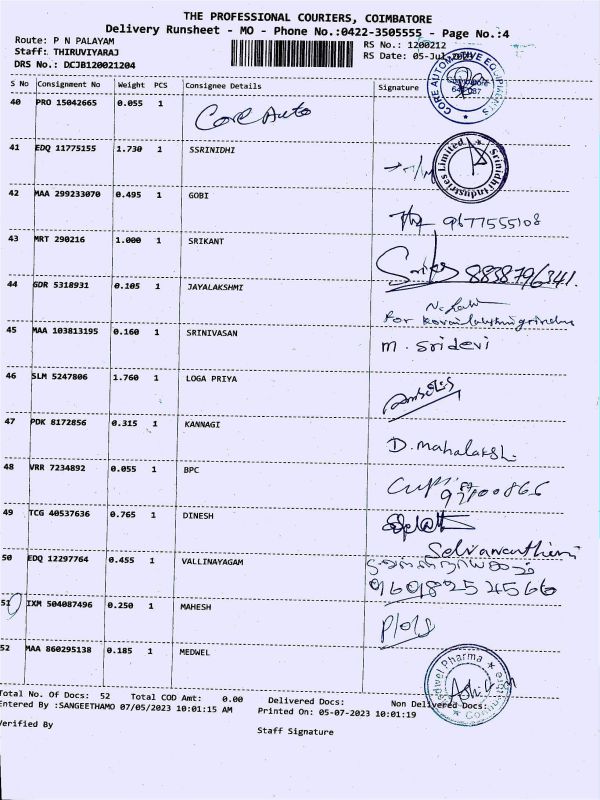 THE PROFESSIONAL COURIERS, COIMBATORE
Delivery Runsheet - MO - Phone No.:0422-3505555 - Page No.:4
Route: P N PALAYAM
RS No.: 1200212
Staff: THIRUVIYARAJ
RS Date: 05-Jul
DRS No.: DCJB120021204
S No Consignment No Weight PCS Consignee Details Signature
CORE AUTOMOTIVE EQUIPMENTS
40 PRO 15042665 0.055 1 Core Auto
41 EDQ 11775155 1.730 1 SSRINIDHI
Srinidhi Industries Limited
42 MAA 299233070 0.495 1 GOBI
9677555108
43 MRT 290216 1.000 1 SRIKANT
8838796341.
44 GDR 5318931 0.105 1 JAYALAKSHMI
For
45 MAA 103813195 0.160 1 SRINIVASAN
M. Sridevi
46 SLM 5247806 1.760 1 LOGA PRIYA
47 PDK 8172856 0.315 1 KANNAGI
D. Mahalaksh
48 VRR 7234892 0.055 1 BPC
49 TCG 40537636 0.765 1 DINESH
50 EDQ 12297764 0.455 1 VALLINAYAGAM
9698254566
51 IXM 504087496 0.250 1 MAHESH
52 MAA 860295138 0.185 1 MEDWEL
Medwel Pharma
Total No. Of Docs: 52 Total COD Amt: 0.00 Delivered Docs: Non Delivered Docs:
Entered By :SANGEETHAMO 07/05/2023 10:01:15 AM Printed On: 05-07-2023 10:01:19
Verified By
Staff Signature